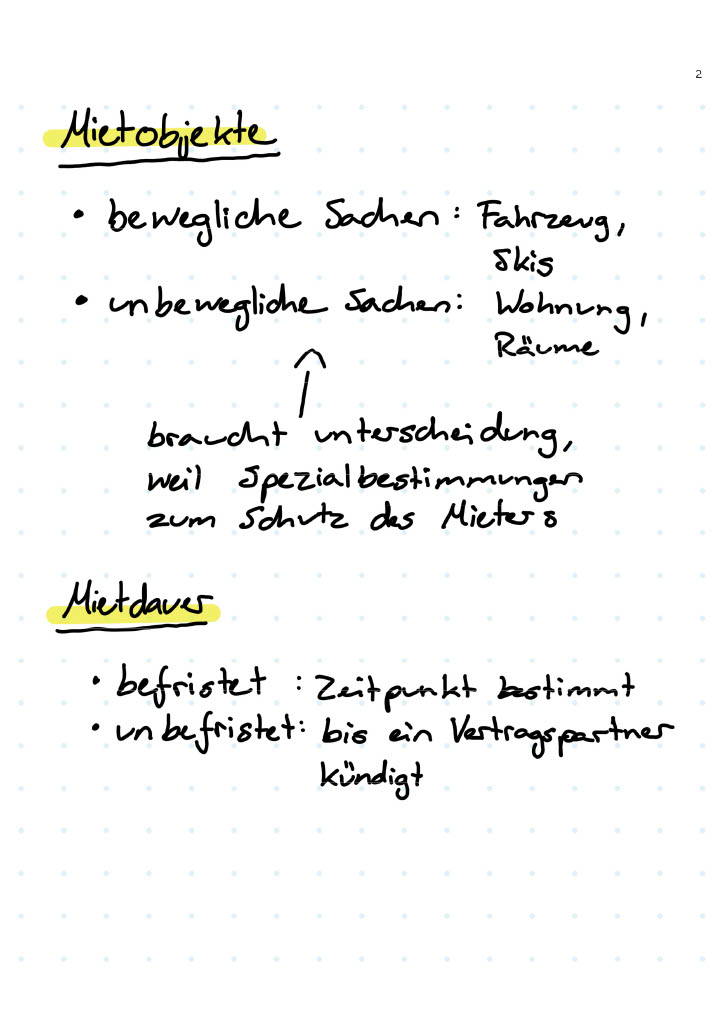 2
Mietobjekte
• bewegliche Sachen: Fahrzeug,
Skis
• unbewegliche Sachen: Wohnung,
Räume
braucht unterscheidung,
weil Spezialbestimmungen
zum Schutz des Mieters
Mietdauer
• befristet : Zeitpunkt bestimmt
• unbefristet: bis ein Vertragspartner
kündigt